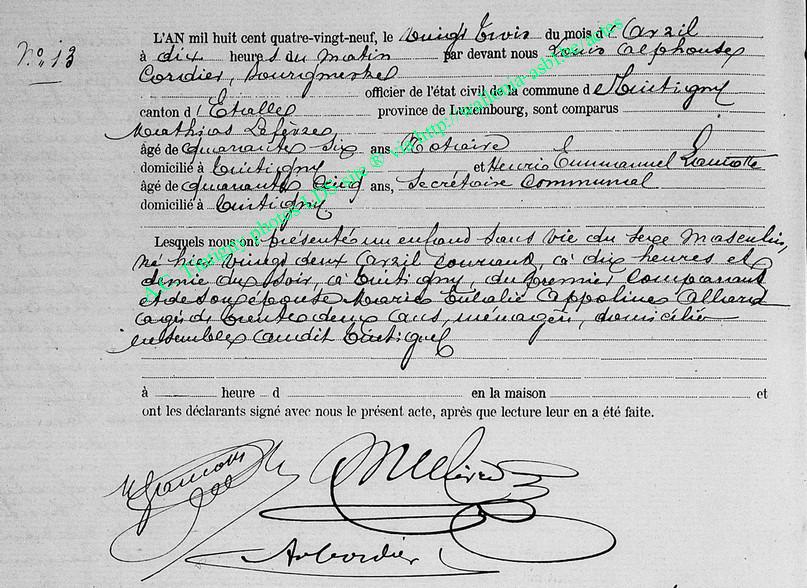 N° 13
L'AN mil huit cent quatre-vingt-neuf, le vingt trois du mois d'Avril
à dix heures du matin par devant nous Louis Alphonse
Cordier, bourgmestre
officier de l'état civil de la commune de Tintigny
canton d'Etalle province de Luxembourg, sont comparus
Mathias Lefèvre
âgé de quarante six ans Notaire
domicilié à Tintigny et Henri Emmanuel
âgé de quarante cinq ans, Secrétaire Communal
domicilié à Tintigny
Lesquels nous ont présenté un enfant sans vie du sexe masculin,
né hier vingt deux Avril courant, à dix heures et
demie du soir, à Tintigny, du premier Comparant
et de son épouse Marie Eulalie Appoline Allard
agée de trente deux ans, ménagère, domiciliés
ensembles audit Tintigny
à heure d en la maison et
ont les déclarants signé avec nous le présent acte, après que lecture leur en a été faite.
Cordier